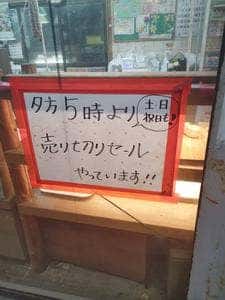 夕方5時より
土日
祝日も!
売り七刀リセール
やっています!!